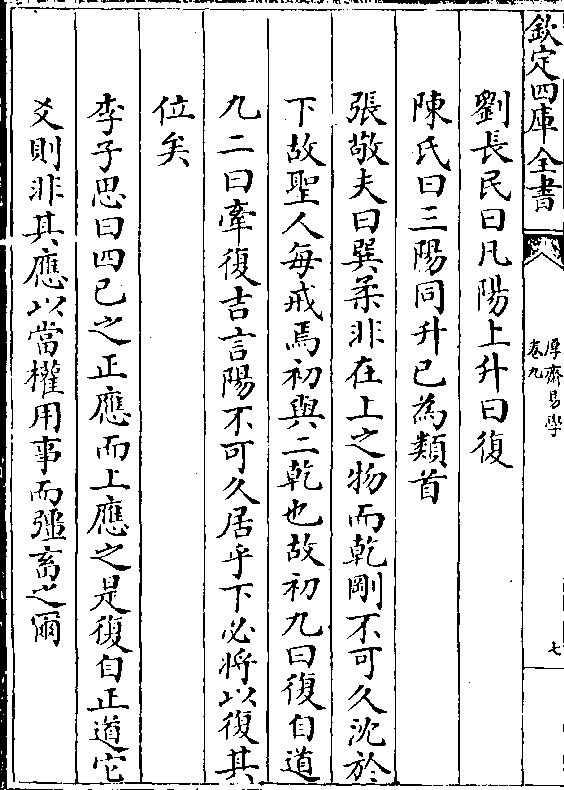 欽定四庫全書
厚齋易學
卷九
七
劉長民曰凡陽上升曰復
陳氏曰三陽同升已為類首
張敬夫曰巽柔非在上之物而乾剛不可久沈於
下故聖人每戒焉初與二乾也故初九曰復自道
九二曰牽復吉言陽不可久居乎下必將以復其
位矣
李子思曰四已之正應而上應之是復自正道它
爻則非其應以當權用事而强畜之爾